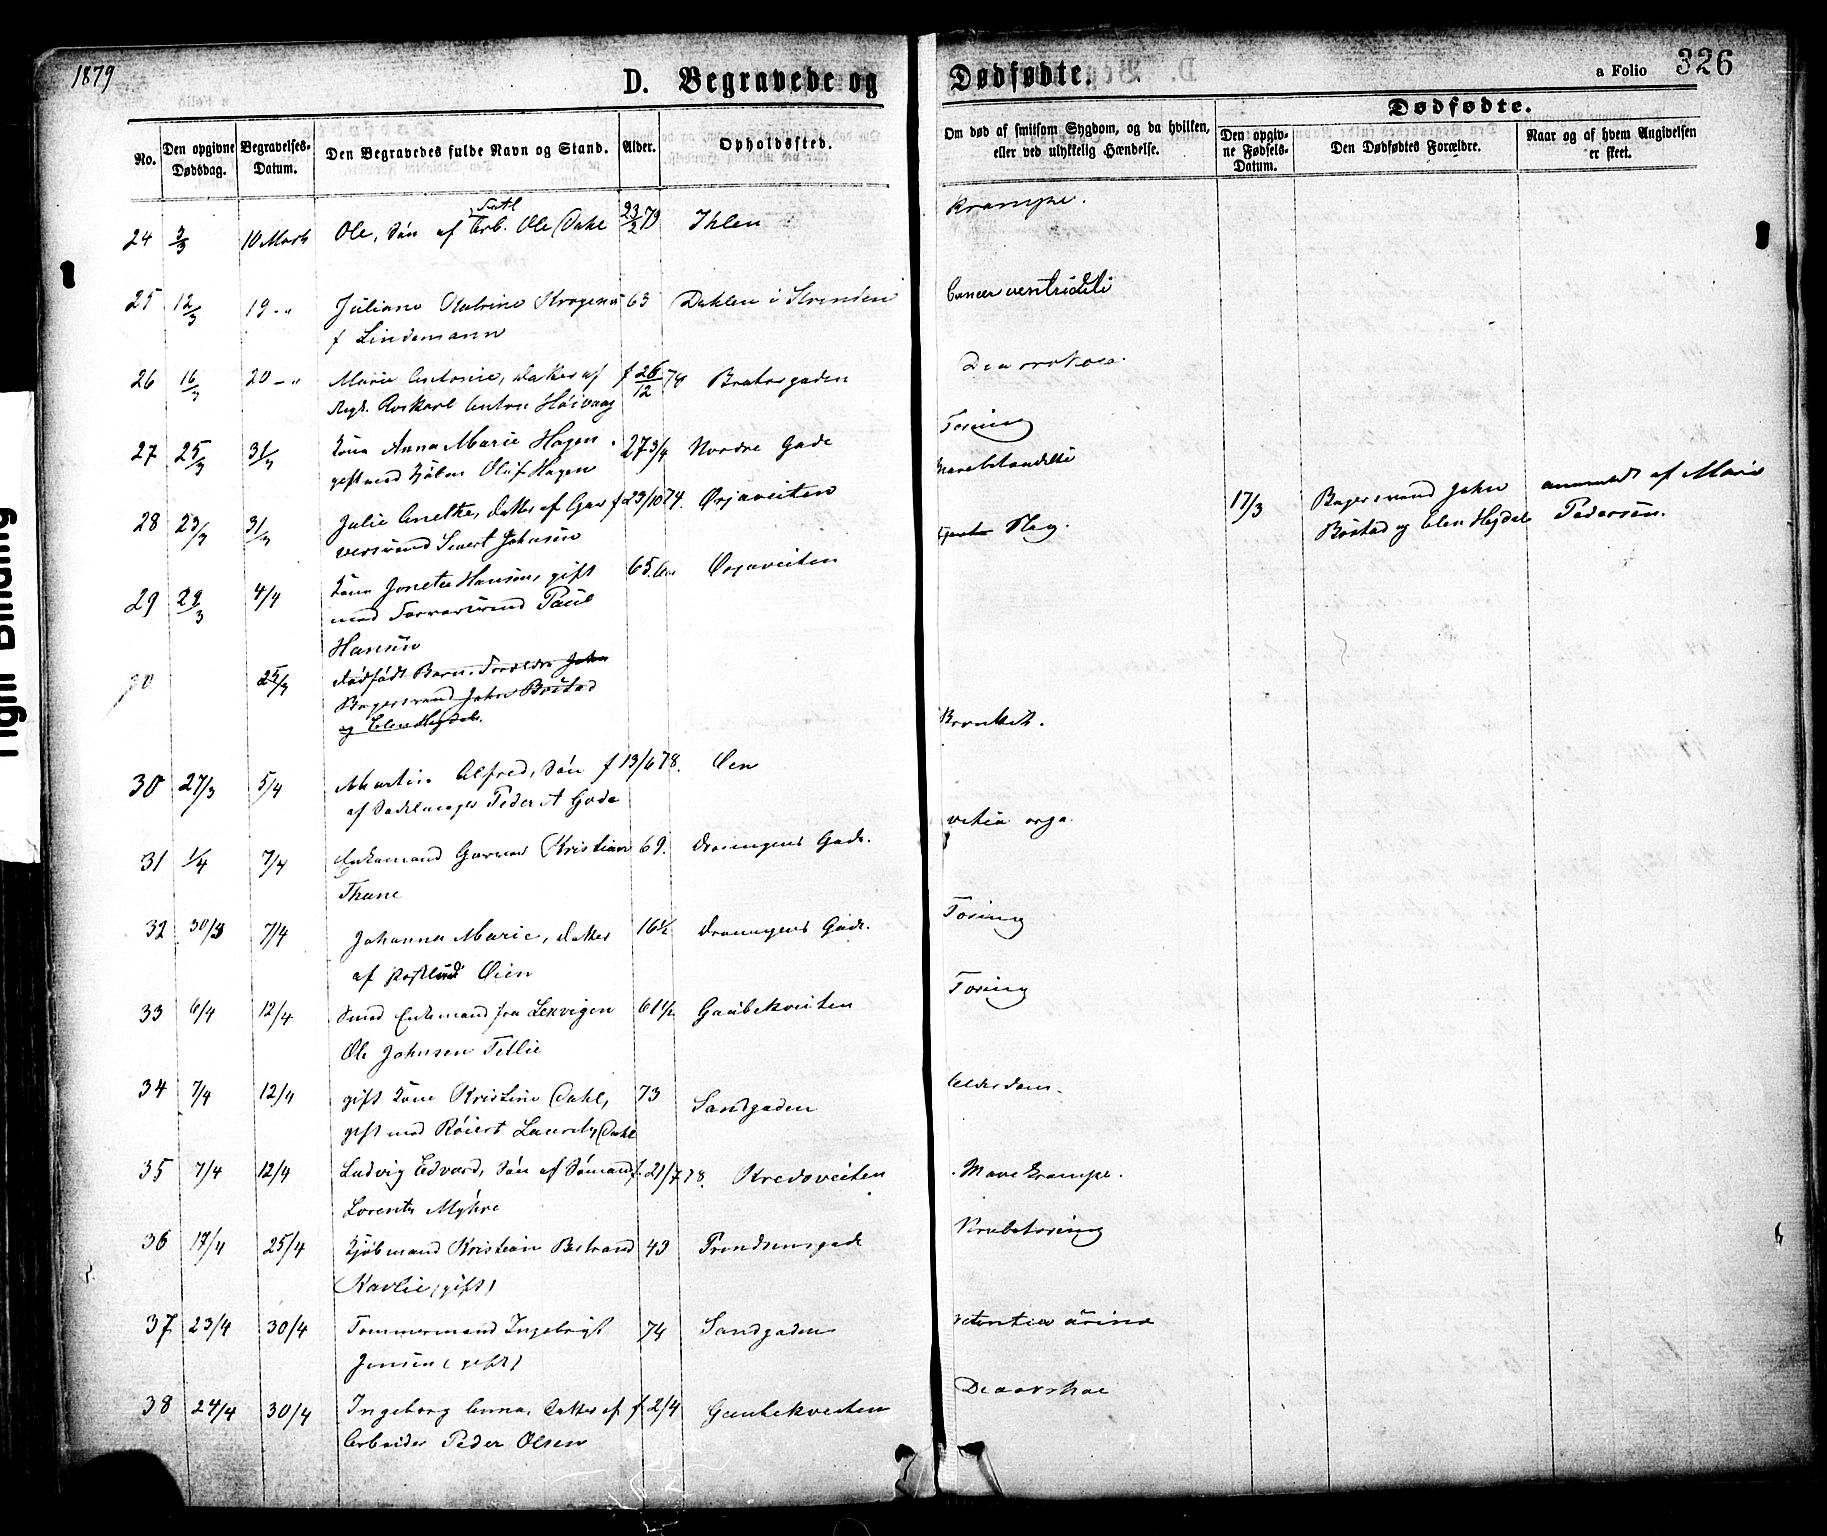 1879
D. Begravede og Dødfødte.
a Folio 326
No.
Den opgivne Dødsdag.
Begravelses-Datum.
Den Begravedes fulde Navn og Stand.
Alder.
Opholdssted.
Om død af smitsom Sygdom, og da hvilken, eller ved ulykkelig Hændelse.
Dødfødte.
Den opgivne Fødsels-Datum.
Den Dødfødtes Forældre.
Naar og af hvem Angivelsen er skeet.
24 3/3 10 Marts Ole, Søn af Arb. Ole Dahl 23/2 79 Ihlen Krampe.
25 12/3 19 -"- Juliane Katrine 63 Dahlen i Strinden Cancer ventriculi
f Lindemann
26 16/3 20 -"- Marie Antonie, Datter af f 26/12 78 Bratørgaden
Anton Høivaag
27 25/3 31/3 Kone Anna Marie Hagen 27 3/4 Nordre Gade Tæring
gift med Olaf Hagen
28 23/3 31/3 Julie Anethe, Datter af Gar f 23/10 74. Ørjaveiten
versvend Sivert Johnsen
17/3 Bagersvend John anmeldt af Marie
Bostad og Elen Hegdal Pedersen.
29 29/3 4/4 Kone Jonette Hansen, gift 65 Aar Ørjaveiten Slag.
med Farversvend Paul
Hansen
30 25/3 dødfødt Barn. Forældre John
Bagersvend John Bostad
og Elen Hegdal.
30 27/3 5/4 Martin Alfred, Søn f 13/6 78. Øen Bronkit.
af Sadelmager Peder A Gode
31 1/4 7/4 Enkemand Garver Kristian 69. Dronningens Gade.
Thane
32 30/3 7/4 Johanna Marie, Datter 16 1/2 Dronningens Gade. Tæring
af Øien
33 6/4 12/4 Smed Enkemand fra Lexvigen 61 1/2 Gaubekveiten Tæring
Ole Johnsen Tellie
34 7/4 12/4 gift Kone Kristine Dahl, 73 Sandgaden Alderdom.
gift med Laurits Dahl
35 7/4 12/4 Ludvig Edvard, Søn af Sømand f. 21/7 78. Kredsveiten Mavekrampe.
Lorents Myhre
36 17/4 25/4 Kjøbmand Kristian Bertrand 43 Prindsensgade Strubetæring
Kavlie (gift)
37 23/4 30/4 Tømmermand Ingebrigt 74 Sandgaden retentia urina
Jensen (gift)
38 24/4 30/4 Ingeborg Anna, Datter af f 2/4 Gaubekveiten
Arbeider Peder Olsen